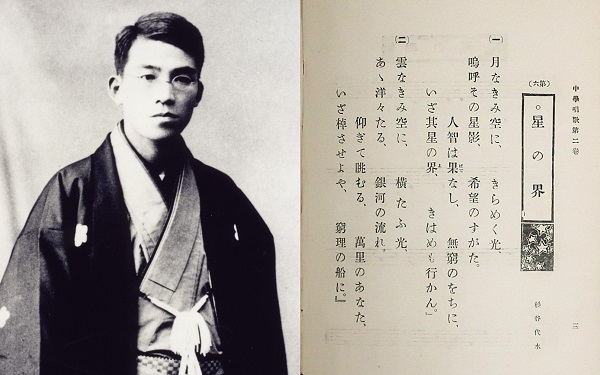 中學唱歌第二卷
三
(第六)
。星の界
杉谷代水
(一) 月なきみ空に、 きらめく光、
嗚呼その星影、 希望のすがた。
人智は果なし、 無窮のをちに、
いざ其星の界、 きはめも行かん」
(二) 雲なきみ空に、 横たふ光、
あゝ洋々たる、 銀河の流れ、
仰ぎて眺むる、 萬里のあなた、
いざ棹させよや、 窮理の船に』